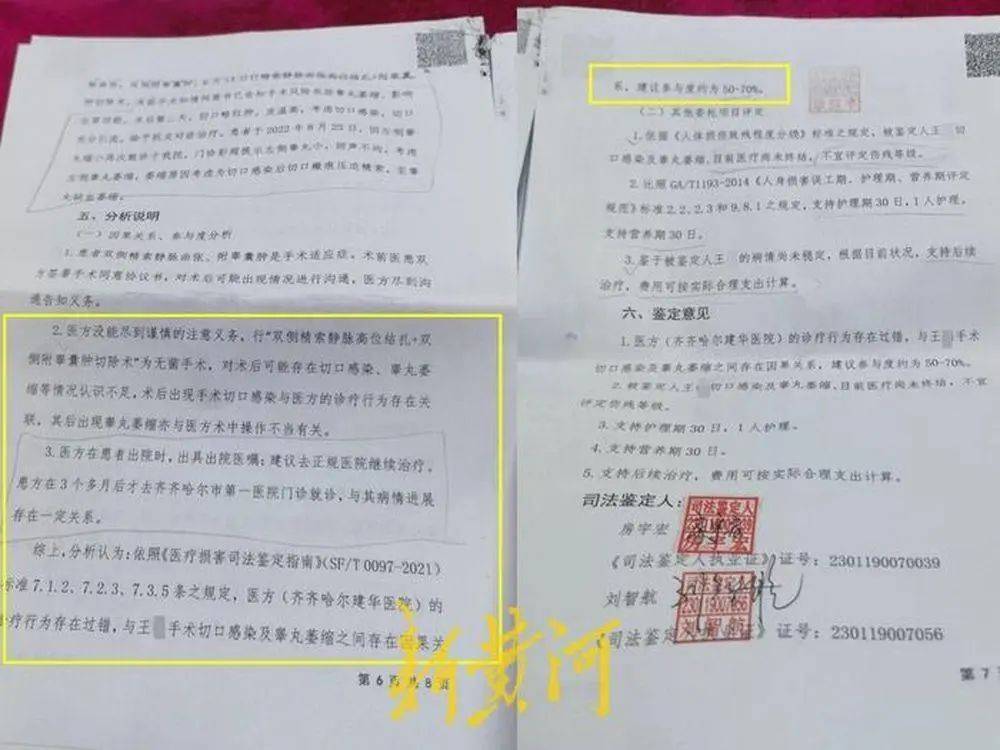 切口感染,
患者于2022年8月23日,因左侧睾
丸缩小再次就诊于我院,门诊彩超提示左侧睾丸小,回声不均,考虑
左侧睾丸萎缩,萎缩原因考虑为切口感染后切口瘢痕压迫精索,至睾
丸缺血萎缩。
五、分析说明
(一)因果关系、参与度分析
1.患者双侧精索静脉曲张、附睾囊肿是手术适应症。术前医患双
方签署手术同意协议书,对术后可能出现情况进行沟通,医方尽到沟
通告知义务。
2.医方没能尽到谨慎的注意义务,行"双侧精索静脉高位结扎+双
侧附睾囊肿切除术"为无菌手术,对术后可能存在切口感染、睾丸萎
缩等情况认识不足,术后出现手术切口感染与医方的诊疗行为存在关
联,其后出现睾丸萎缩亦与医方术中操作不当有关。
3.医方在患者出院时,出具出院医嘱:建议去正规医院继续治疗。
患方在3个多月后才去齐齐哈尔市第一医院门诊就诊,与其病情进展
存在一定关系。
综上,分析认为:依照《医疗损害司法鉴定指南》(SF/T 0097-2021)
标准7.1.2、7.2.3、7.3.5条之规定,医方(齐齐哈尔建华医院)的
诊疗行为存在过错,与王 手术切口感染及睾丸萎缩之间存在因果关
第 6 页 共 8 页
系,建议参与度约为50-70%。
(二)其他委托项目评定
1.依据《人体损伤致残程度分级》标准之规定,被鉴定人王 切
口感染及睾丸萎缩,目前医疗尚未终结,不宜评定伤残等级。
2.比照GA/T1193-2014《人身损害误工期、护理期、营养期评定
规范》标准2.2、2.3和9.8.1之规定,支持护理期30日,1人护理,
支持营养期30日。
3.鉴于被鉴定人王 的病情尚未稳定,根据目前状况,支持后续
治疗,费用可按实际合理支出计算。
六、鉴定意见
1.医方(齐齐哈尔建华医院)的诊疗行为存在过错,与王 手术
切口感染及睾丸萎缩之间存在因果关系,建议参与度约为50-70%。
2.被鉴定人王 切口感染及睾丸萎缩,目前医疗尚未终结,不宜
评定伤残等级。
3.支持护理期30日,1人护理。
4.支持营养期30日。
5.支持后续治疗,费用可按实际合理支出计算。
司法鉴定人:
司法鉴定人
房宇宏
《司法鉴定人执业证》证号:230119070039
司法鉴定人
刘智航
《司法鉴定人执业证》证号:230119007056
第 7
新黄河